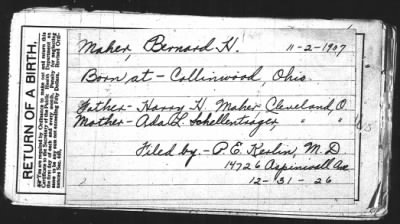 RETURN OF A BIRTH.
Maher, Bernard H. 11-2-1907
Born, at - Collinwood, Ohio.
Father - Harry H. Maher Cleveland, O
Mother - Ada L. Schellentrager, " "
Filed by - P. E. Kerlin, M. D
14726 Aspinwall Ave
12-31-26